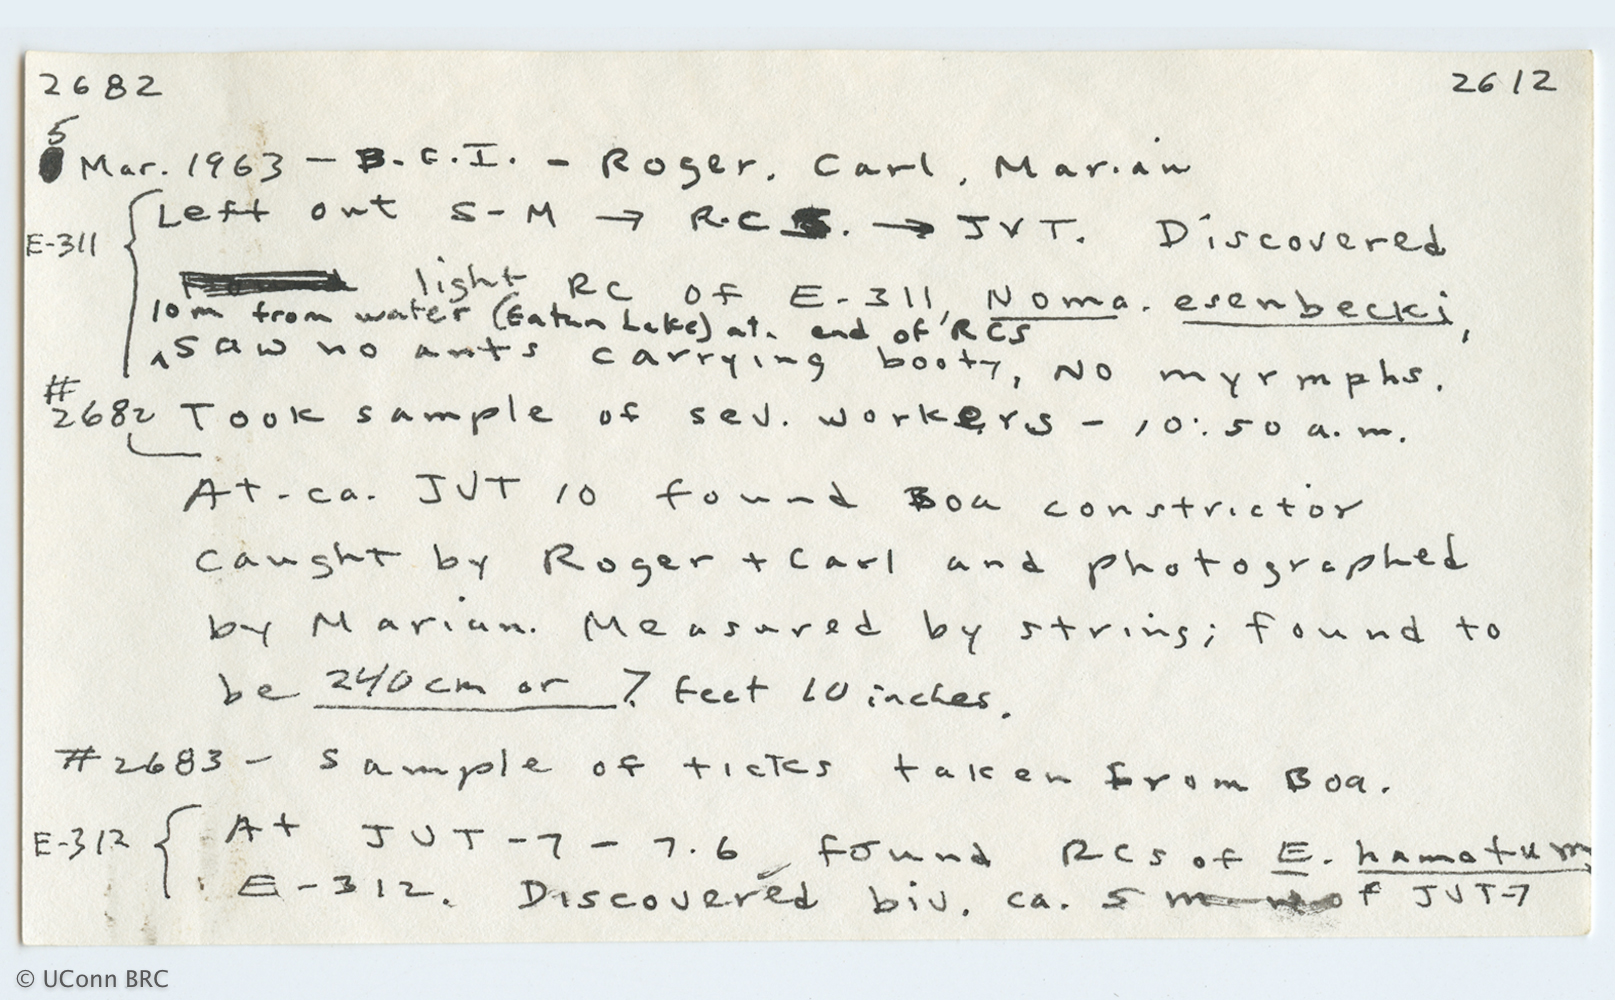 2682 2612
5 Mar. 1963 - B.C.I. - Roger, Carl, Marian
E-311 { Left out S-M → R.C. → JVT. Discovered
light RC of E-311, Noma. esenbecki,
10m from water (Eaton Lake) at end of RCS
^ saw no ants carrying booty, No myrmphs.
# 2682 Took sample of sev. workers - 10:50 a.m.
At-ca. JVT 10 found Boa constrictor
caught by Roger + Carl and photographed
by Marian. Measured by string; found to
be 240 cm or 7 feet 10 inches.
#2683 - Sample of ticks taken from Boa.
E-312 { At JVT-7-7.6 found RCs of E. hamatum
E-312. Discovered biv. ca. 5 m of JVT-7
© UConn BRC